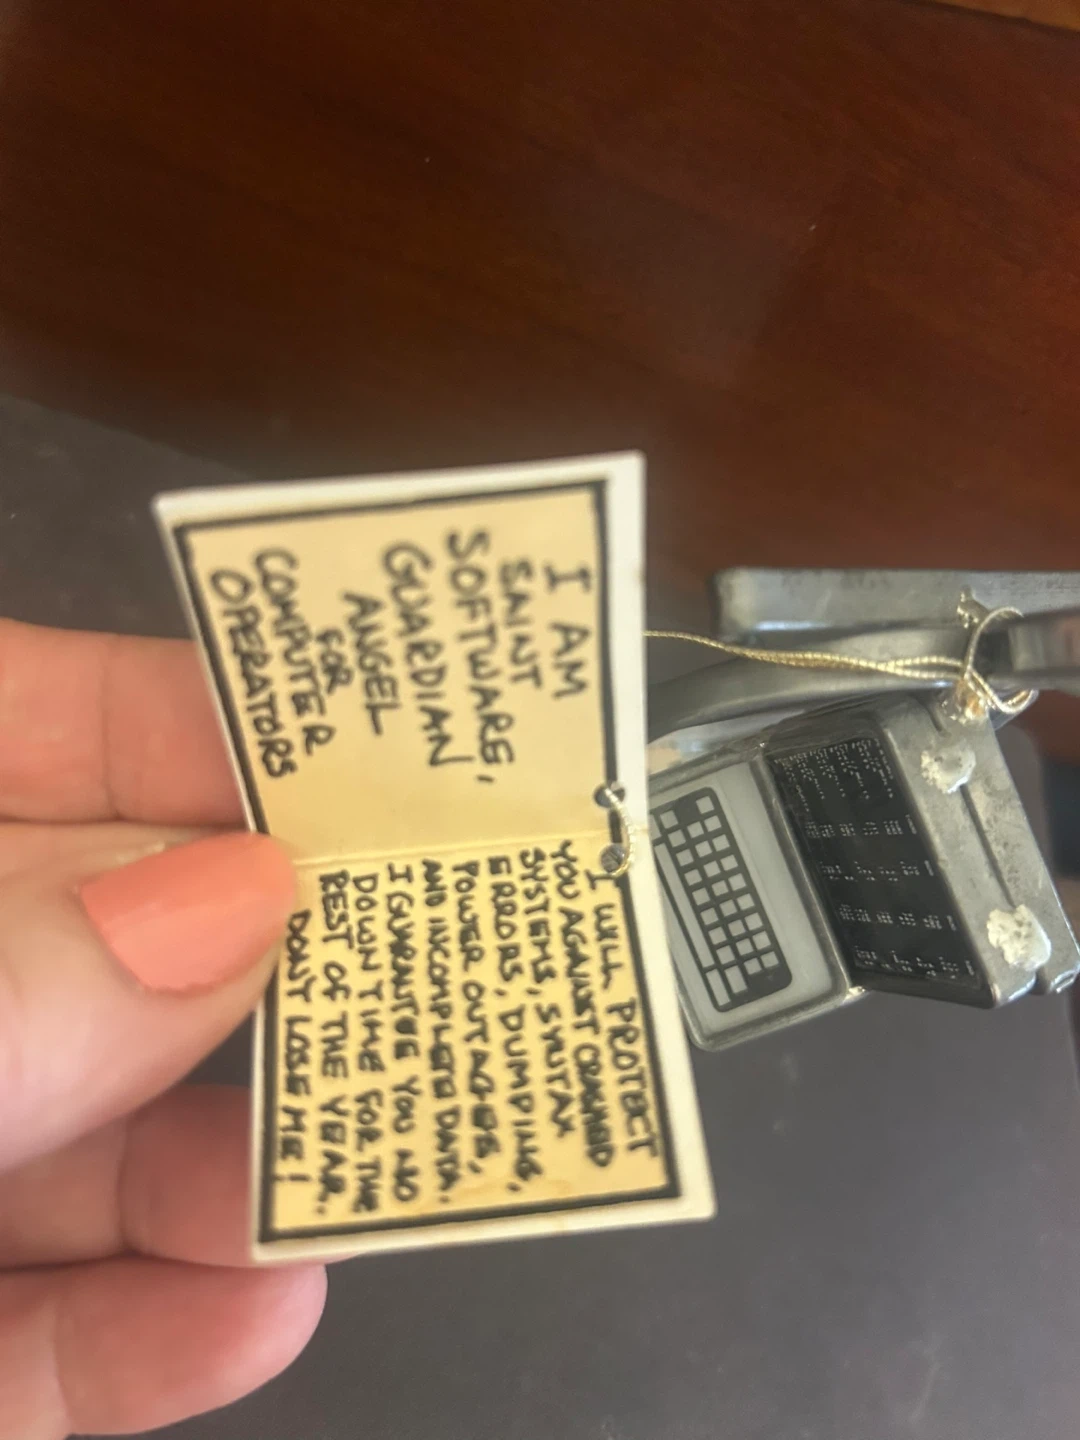 I AM
SAINT
SOFTWARE,
GUARDIAN
ANGEL
FOR
COMPUTER
OPERATORS
I WILL PROTECT
YOU AGAINST CRASHED
SYSTEMS, SYNTAX
ERRORS, DUMPING,
POWER OUTAGES,
AND INCOMPLETE DATA.
I GUARANTEE YOU NO
DOWN TIME FOR THE
REST OF THE YEAR.
DON'T LOSE ME!